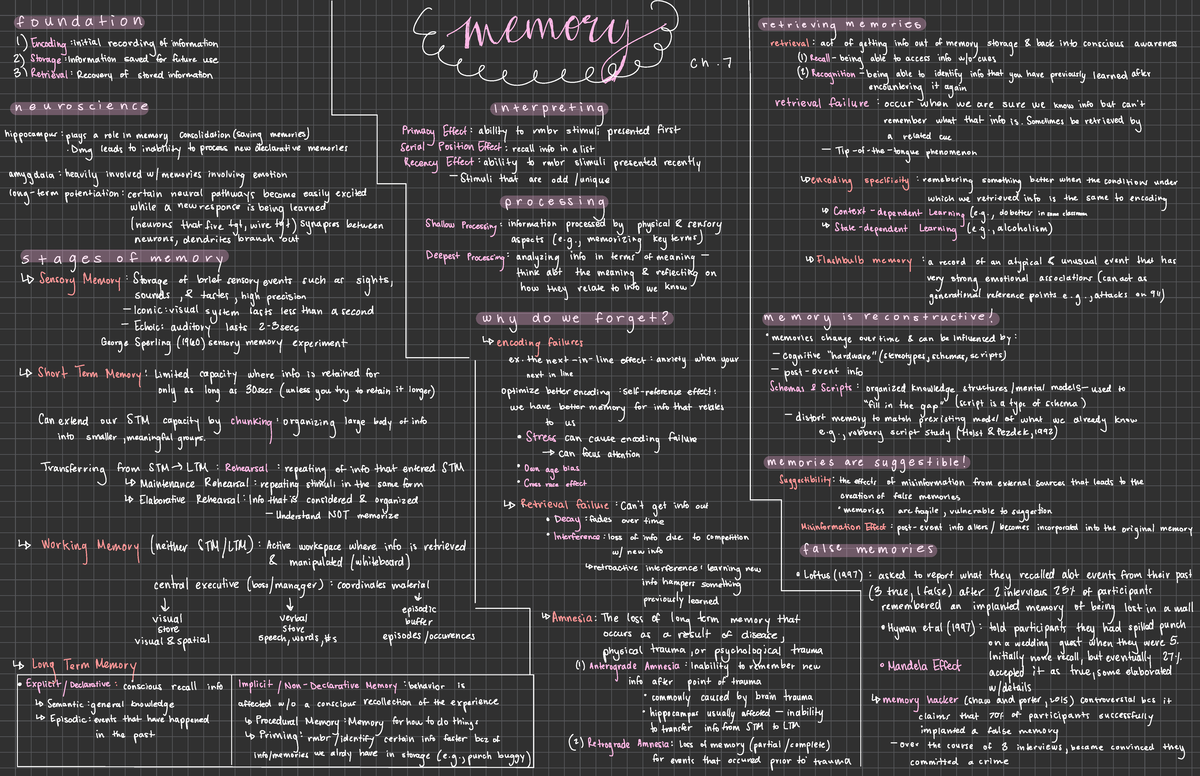 memory
ch. 7
foundation
1) Encoding: Initial recording of information
2) Storage: Information saved for future use
3) Retrieval: Recovery of stored information
neuroscience
hippocampus: plays a role in memory consolidation (saving memories)
· Dmg leads to inability to process new declarative memories
amygdala: heavily involved w/ memories involving emotion
long-term potentiation: certain neural pathways become easily excited
while a new response is being learned
(neurons that fire tgt, wire tgt) synapses between
neurons, dendrites branch out
stages of memory
↳ Sensory Memory: Storage of brief sensory events such as sights,
sounds, & tastes, high precision
— Iconic: visual system lasts less than a second
— Echoic: auditory lasts 2-3secs
George Sperling (1960) sensory memory experiment
↳ Short Term Memory: Limited capacity where info is retained for
only as long as 30sec (unless you try to retain it longer)
Can extend our STM capacity by chunking: organizing large body of info
into smaller, meaningful groups.
Transferring from STM → LTM: Rehearsal: repeating of info that entered STM
↳ Maintenance Rehearsal: repeating stimuli in the same form
↳ Elaborative Rehearsal: Info that is considered & organized
— Understand NOT memorize
↳ Working Memory (neither STM/LTM): Active workspace where info is retrieved
& manipulated (whiteboard)
central executive (boss/manager): coordinates material
visual store
visual & spatial
verbal store
speech, words, #s
episodic buffer
episodes/occurences
↳ Long Term Memory
• Explicit/Declarative: conscious recall info
↳ Semantic: general knowledge
↳ Episodic: events that have happened
in the past
Implicit/Non-Declarative Memory: behavior is
affected w/o a conscious recollection of the experience
↳ Procedural Memory: Memory for how to do things
↳ Priming: rmbr/identify certain info faster bcz of
info/memories we alrdy have in storage (e.g., punch buggy)
Interpreting
Primacy Effect: ability to rmbr stimuli presented first
Serial Position Effect: recall info in a list
Recency Effect: ability to rmbr stimuli presented recently
— Stimuli that are odd/unique
processing
Shallow Processing: information processed by physical & sensory
aspects (e.g., memorizing key terms)
Deepest Processing: analyzing info in terms of meaning —
think abt the meaning & reflecting on
how they relate to info we know
why do we forget?
↳ encoding failures
ex. the next-in-line effect: anxiety when your
next in line
optimize better encoding: self-reference effect:
we have better memory for info that relates
to us
• Stress can cause encoding failure
→ can focus attention
• Own age bias
• Cross race effect
↳ Retrieval failure: Can't get info out
• Decay: fades over time
• Interference: loss of info due to competition
w/ new info
↳ retroactive interference: learning new
info hampers something
previously learned
↳ Amnesia: The loss of long term memory that
occurs as a result of disease,
physical trauma, or psychological trauma
(1) Anterograde Amnesia: Inability to remember new
info after point of trauma
• commonly caused by brain trauma
• hippocampus usually affected — inability
to transfer info from STM to LTM
(2) Retrograde Amnesia: Loss of memory (partial/complete)
for events that occured prior to trauma
retrieving memories
retrieval: act of getting info out of memory storage & back into conscious awareness
(1) Recall - being able to access info w/o cues
(2) Recognition - being able to identify info that you have previously learned after
encountering it again
retrieval failure: occur when we are sure we know info but can't
remember what that info is. Sometimes be retrieved by
a related cue
— Tip-of-the-tongue phenomenon
↳ encoding specificity: remebering something better when the conditions under
which we retrieved info is the same to encoding
↳ Context-dependent Learning (e.g., do better in same classroom
↳ State-dependent Learning (e.g., alcoholism)
↳ Flashbulb memory: a record of an atypical & unusual event that has
very strong emotional associations (can act as
generational reference points e.g., attacks on 911)
memory is reconstructive!
• memories change over time & can be influenced by:
— cognitive "hardware" (stereotypes, schemas, scripts)
— post-event info
Schemas & Scripts: organized knowledge structures/mental models — used to
"fill in the gap" (script is a type of schema)
— distort memory to match prexisting model of what we already know
e.g., robbery script study (Holst & Pezdek, 1992)
memories are suggestible!
Suggestibility: the effects of misinformation from external sources that leads to the
creation of false memories
• memories are fragile, vulnerable to suggestion
Misinformation Effect: post-event info alters/becomes incorporated into the original memory
false memories
• Loftus (1997): asked to report what they recalled abt events from their past
(3 true, 1 false) after 2 interviews 25% of participants
remembered an implanted memory of being lost in a mall
• Hyman et al (1997): told participants they had spilled punch
on a wedding guest when they were 5.
Initially none recall, but eventually 27%
accepted it as true, some elaborated
w/details
• Mandela Effect
↳ memory hacker (shaw and porter, 2015) controversial bcs it
claims that 70% of participants successfully
implanted a false memory
— over the course of 3 interviews, became convinced they
committed a crime